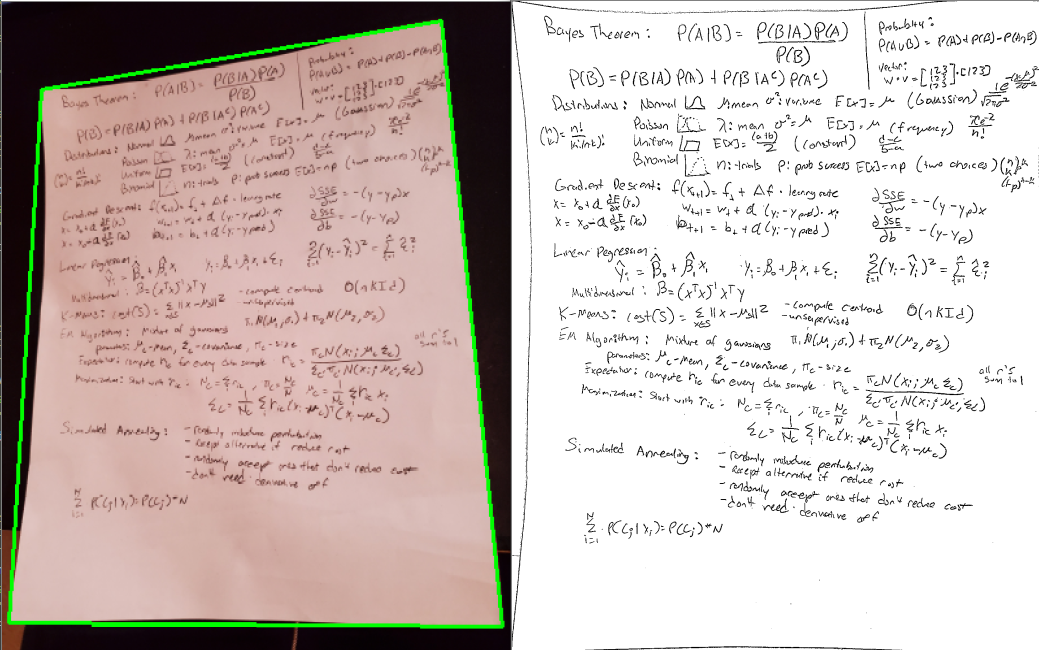 Bayes Theorem: P(A|B) = P(B|A)P(A) / P(B)
Probability:
P(A∪B) = P(A)+P(B)-P(A∩B)
P(B) = P(B|A) P(A) + P(B|A^c) P(A^c)
vector:
w∘v = [1 2 3]·[1 2 3]
Distributions: Normal μ:mean σ²:variance E[x]=μ (Gaussian)
Poisson λ: mean σ²=μ E[x]=μ (frequency)
(n k) = n!
Uniform E[x]=(a+b)/2 (constant)
Binomial n:trials p: prob success E[x]=np (two choices)
Gradient Descent: f(x_{t+1}) = f_t + Δf · learning rate ∂SSE/∂w = -(y-y_p)x
x = x_0 + α ∂F/∂x (x_0) w_{t+1} = w_t + α (y_i - y pred) · x_i
x = x_0 - α (x_0) b_{t+1} = b_t + α (y_i - y pred) ∂SSE/∂b = -(y-y_p)
Linear Regression:
Ŷ_i = β̂_0 + β̂_1 x_i y_i = β_0 + β_1 x_i + ε_i Σ_{i=1}^n (y_i - Ŷ_i)² = Σ_{i=1}^n ε̂_i²
Multidimensional: β = (xᵀx)⁻¹ xᵀy
K-Means: cost(S) = Σ_{x∈S} ||x-μ_s||² -compute centroid O(nKId)
-unsupervised
EM Algorithm: Mixture of gaussians π_1 N(μ_1, σ_1) + π_2 N(μ_2, σ_2)
parameters: μ_c-mean, Σ_c-covariance, π_c-size
all r's sum to 1
Expectation: compute r_ic for every data sample · r_ic = π_c N(x_i; μ_c Σ_c) / Σ_c' π_c' N(x_i; μ_c', Σ_c')
Maximization: Start with r_ic · N_c = Σ_i r_ic, π_c = N_c/N μ_c = 1/N_c Σ_i r_ic x_i
Σ_c = 1/N_c Σ_i r_ic (x_i - μ_c)ᵀ (x_i - μ_c)
Simulated Annealing: -randomly introduce perturbation
-accept alternative if reduce cost
-randomly accept ones that don't reduce cost
-don't need derivative of f
Σ_{i=1}^N P(C_j|x_i) = P(C_j)*N